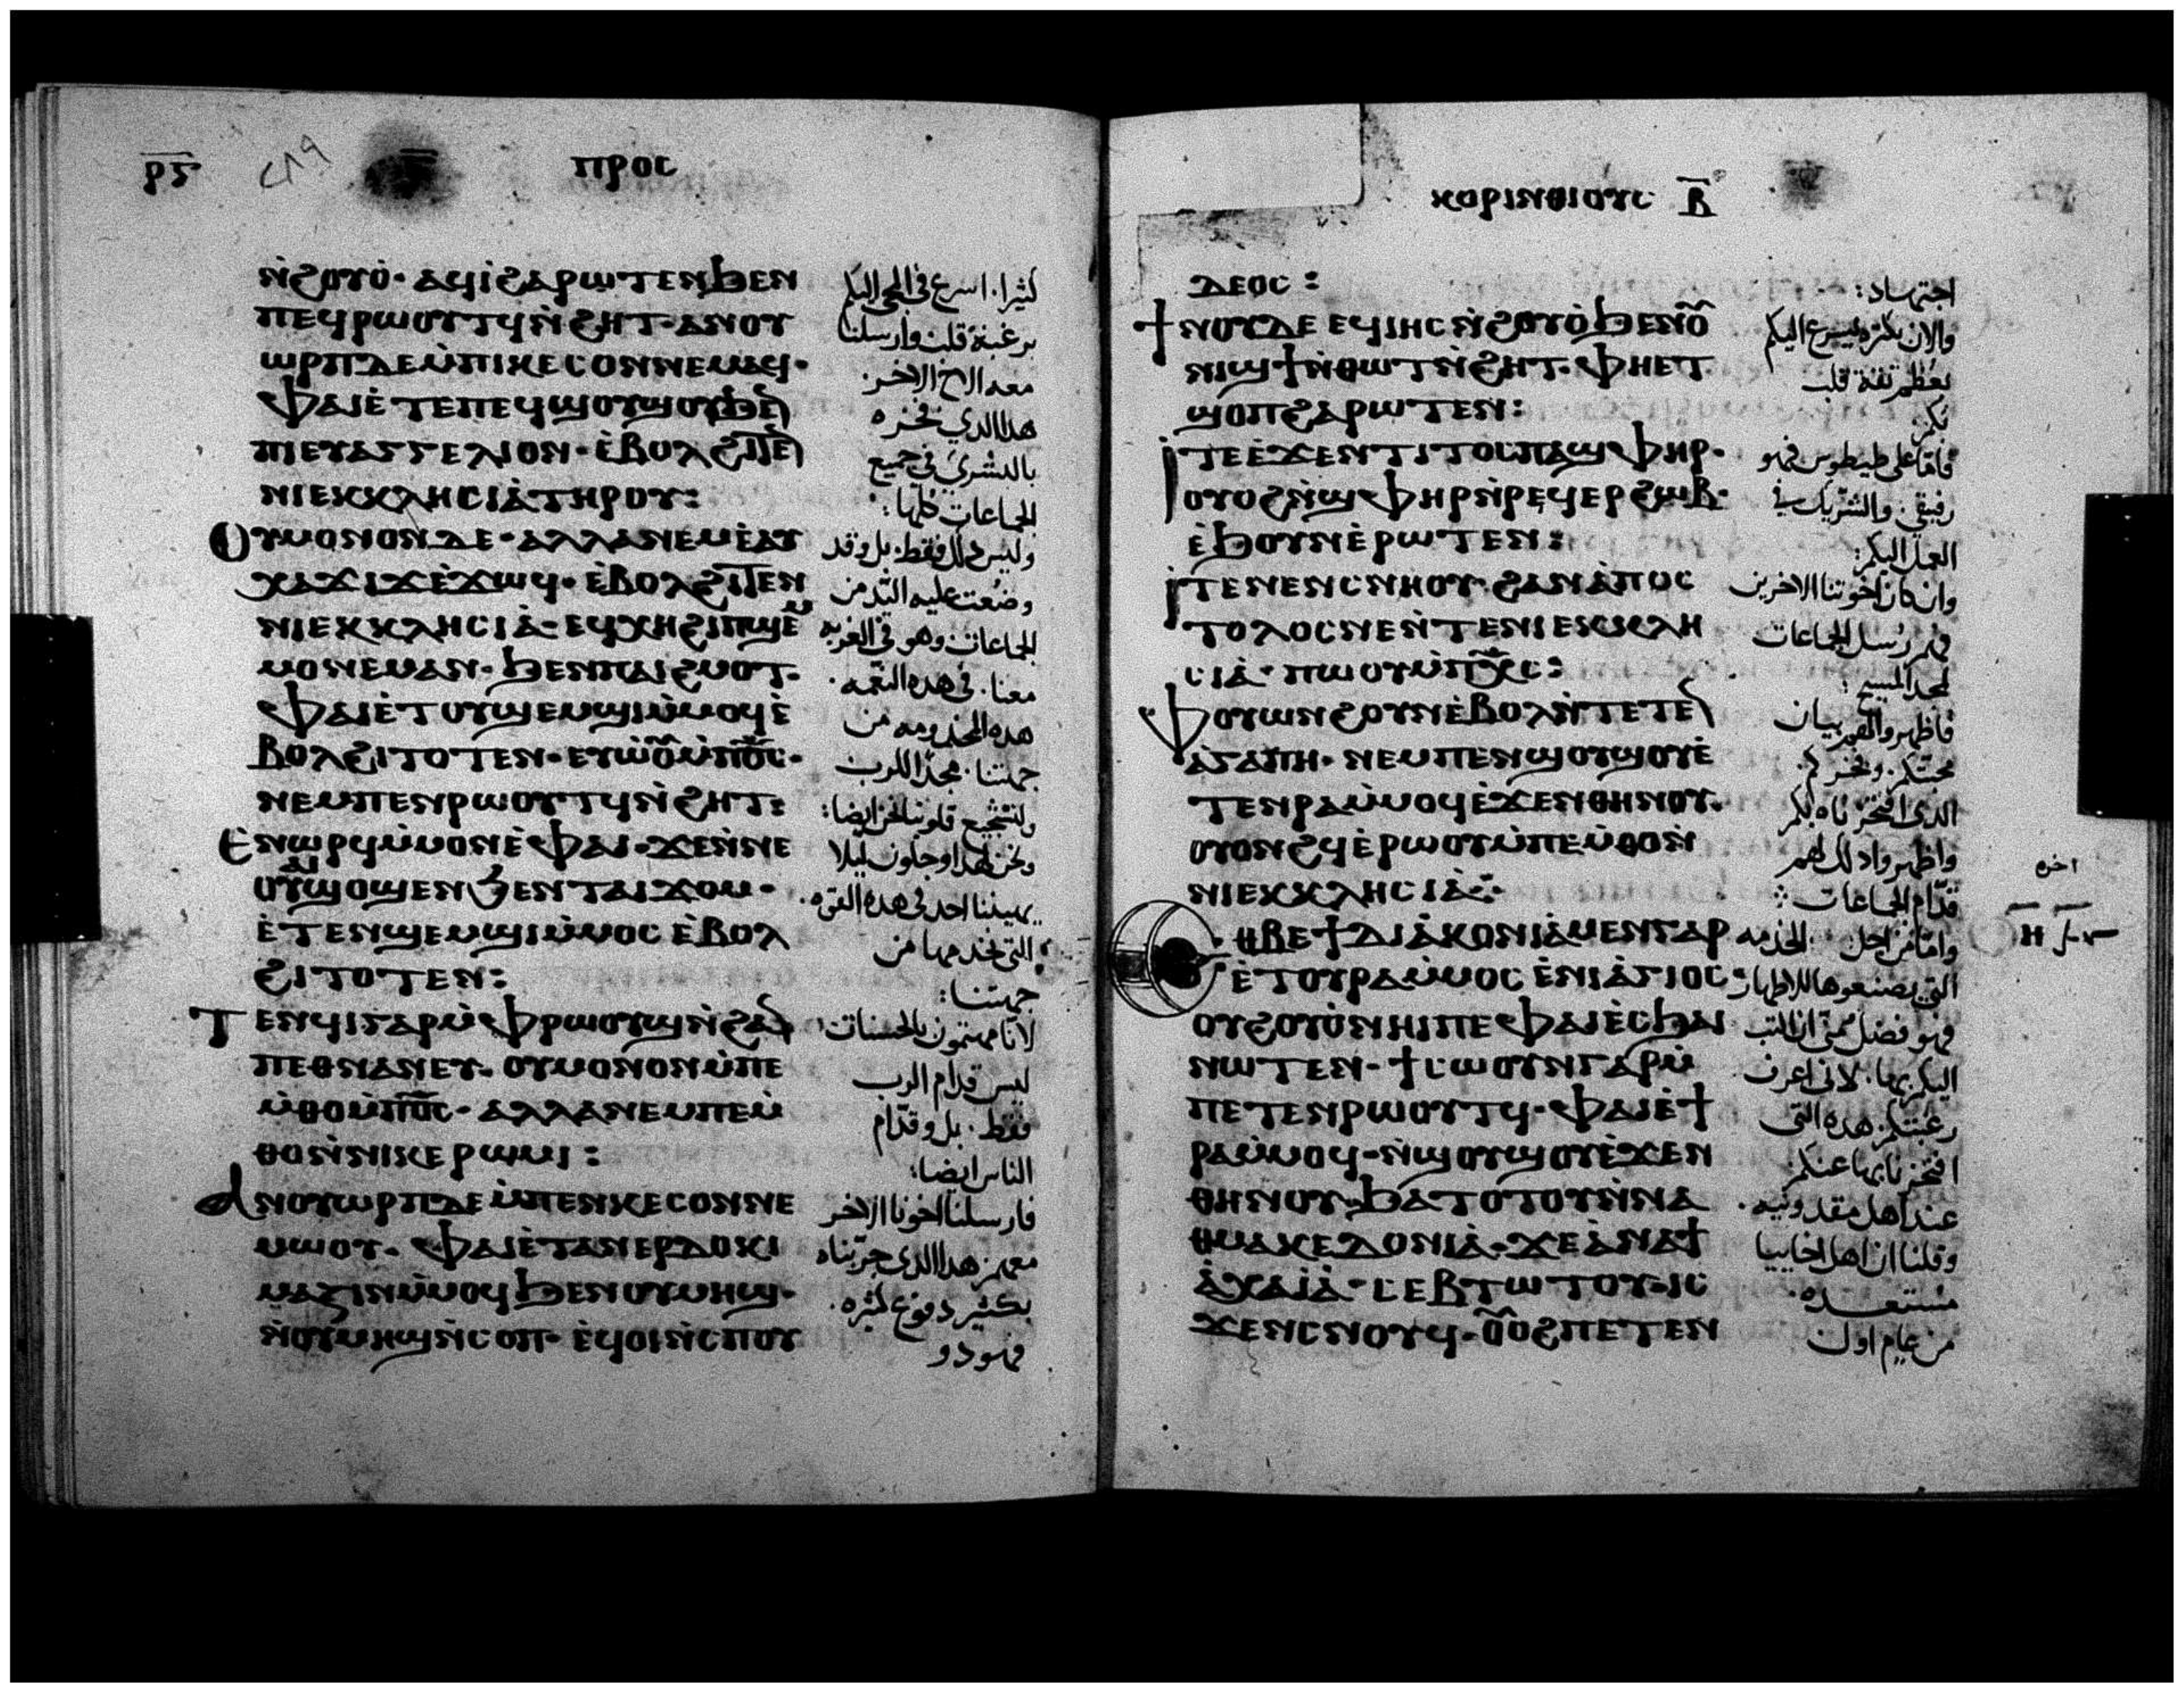 ⲣⲋ
ⲡⲣⲟⲥ
ⲛ̀ϩⲟⲩⲟ̀· ⲁϥⲓ̀ϩⲁⲣⲱⲧⲉⲛϧⲉⲛ
ⲡⲉϥⲣⲱⲟⲩⲧϥⲛ̀ϩⲏⲧ· ⲁⲛⲟⲩ
ⲱⲣⲡⲇⲉⲙ̀ⲡⲓⲕⲉⲥⲟⲛⲛⲉⲙⲁϥ·
ⲫⲁⲓⲉ̀ⲧⲉⲡⲉϥϣⲟⲩϣⲟⲩϧⲉ̅
ⲡⲓⲉⲩⲁⲅⲅⲉⲗⲓⲟⲛ· ⲉ̀ⲃⲟⲗϩⲓⲧⲉ̅
ⲛⲓⲉⲕⲕⲗⲏⲥⲓⲁ̀ⲧⲏⲣⲟⲩ:
ⲟⲩⲙⲟⲛⲟⲛⲇⲉ· ⲁⲗⲗⲁⲛⲉⲙⲉ̀ⲁⲩ
ⲭⲁϫⲓϫⲉ̀ϫⲱϥ· ⲉ̀ⲃⲟⲗϩⲓⲧⲉⲛ
ⲛⲓⲉⲕⲕⲗⲏⲥⲓⲁ̀· ⲉϥⲭⲏϩⲓⲡϣⲉ̀ⲙ
ⲙⲟⲛⲉⲙⲁⲛ· ϧⲉⲛⲡⲁⲓϩⲙⲟⲧ·
ⲫⲁⲓⲉ̀ⲧⲟⲩϣⲉⲙϣⲓⲙ̀ⲙⲟϥⲉ̀
ⲃⲟⲗϩⲓⲧⲟⲧⲉⲛ· ⲉⲩⲱ̀ⲟ̅ⲩ̅ⲙ̀ⲡⲟ̅ⲥ̅·
ⲛⲉⲙⲡⲉⲛⲣⲱⲟⲩⲧϥⲛ̀ϩⲏⲧ:
ⲉⲛⲱⲣϥⲙ̀ⲙⲟⲛⲉ̀ⲫⲁⲓ· ϫⲉⲛ̀ⲛⲉ
ⲟⲩⲁⲓϣⲟϣⲉⲛϧⲉⲛⲧⲁⲓϫⲟⲙ·
ⲉ̀ⲧⲉⲛϣⲉⲙϣⲓⲙ̀ⲙⲟⲥ ⲉ̀ⲃⲟⲗ
ϩⲓⲧⲟⲧⲉⲛ:
ⲧⲉⲛϥⲓⲅⲁⲣⲙ̀ⲫⲣⲱⲟⲩϣⲛ̀ϩⲁ̅
ⲡⲉⲑⲛⲁⲛⲉⲩ· ⲟⲩⲙⲟⲛⲟⲛⲙ̀ⲡⲉ
ⲙ̀ⲑⲟⲙ̀ⲡⲟ̅ⲥ̅· ⲁⲗⲗⲁⲛⲉⲙⲡⲉⲙ̀
ⲑⲟⲛ̀ⲛⲓⲕⲉⲣⲱⲙⲓ:
ⲁⲛⲟⲩⲱⲣⲡⲇⲉⲙ̀ⲡⲉⲛⲕⲉⲥⲟⲛⲛⲉ
ⲙⲱⲟⲩ· ⲫⲁⲓⲉ̀ⲧⲁⲛⲉⲣⲇⲟⲕⲓ
ⲙⲁⲍⲓⲛⲙ̀ⲙⲟϥ ϧⲉⲛⲟⲩⲙⲏϣ·
ⲛ̀ⲟⲩⲙⲏϣⲛ̀ⲥⲟⲡ· ⲉ̀ϥⲟⲓⲛ̀ⲥⲡⲟⲩ
كثيرا. اسرع فى المجى اليكم
برغبة قلب وارسلنا
معه الاخ الاخر.
هذا الدي فخره
بالبشرى فى جميع
الجماعات كلها:
وليس ذلك فقط. بل وقد
وضعت عليه اليد من
الجماعات وهو فى الغربه
معنا. فى هده النعمه.
هده المخدومه من
جهتنا. مجدا للرب
ولتشجيع قلوبنا نحن ايضا:
ونحن لهدا وجلون ليلا
يهيننا احد فى هده القوه.
التى نخدمها من
جهتنا:
لاننا مهتمون بالحسنات
ليس قدام الرب
فقط. بل وقدام
الناس ايضا:
فارسلنا اخونا الاخر
معهم. هدا الدى جربناه
بكثير دفوع كثيره.
فهو دو
ⲕⲟⲣⲓⲛⲑⲓⲟⲩⲥ ⲃ̅
ⲇⲉⲟⲥ:
ϯⲛⲟⲩⲇⲉ ⲉϥⲓⲏⲥⲛ̀ϩⲟⲩⲟ̀ϧⲉⲛⲟ̅ⲩ̅
ⲛⲓϣϯⲛ̀ⲑⲱⲧⲛ̀ϩⲏⲧ· ⲫⲏⲉⲧ
ϣⲟⲡϩⲁⲣⲱⲧⲉⲛ:
ⲓⲧⲉⲉ̀ϫⲉⲛⲧⲓⲧⲟⲥⲡⲁϣⲫⲏⲣ·
ⲟⲩⲟϩⲛ̀ϣⲫⲏⲣⲛ̀ⲣⲉϥⲉⲣϩⲱⲃ·
ⲉ̀ϧⲟⲩⲛⲉ̀ⲣⲱⲧⲉⲛ:
ⲓⲧⲉⲛⲉⲛⲥⲛⲏⲟⲩ· ϩⲁⲛⲁ̀ⲡⲟⲥ
ⲧⲟⲗⲟⲥⲛⲉⲛ̀ⲧⲉⲛⲓⲉⲕⲕⲗⲏ
ⲥⲓⲁ̀· ⲡⲱⲟⲩⲙ̀ⲡⲭ̅ⲥ̅:
ⲫⲟⲩⲱⲛϩⲟⲩⲛⲉ̀ⲃⲟⲗⲛ̀ⲧⲉⲧⲉ̅
ⲁ̀ⲅⲁⲡⲏ· ⲛⲉⲙⲡⲉⲛϣⲟⲩϣⲟⲩⲉ̀
ⲧⲉⲛⲣⲁⲙ̀ⲙⲟϥⲉ̀ϫⲉⲛⲑⲏⲛⲟⲩ·
ⲟⲩⲟⲛϩϥⲉ̀ⲣⲱⲟⲩⲙ̀ⲡⲉⲙ̀ⲑⲟⲛ̀
ⲛⲓⲉⲕⲕⲗⲏⲥⲓⲁ̀:
ⲑⲃⲉϯⲇⲓⲁ̀ⲕⲟⲛⲓⲁ̀ⲙⲉⲛⲅⲁⲣ
ⲉ̀ⲧⲟⲩⲣⲁⲙ̀ⲙⲟⲥ ⲉ̀ⲛⲓⲁ̀ⲅⲓⲟⲥ
ⲟⲩϩⲟⲩⲟ̀ⲛⲏⲓⲡⲉ ⲫⲁⲓⲉ̀ⲥϧⲁⲓ
ⲛⲱⲧⲉⲛ· ϯⲥⲱⲟⲩⲛⲅⲁⲣⲙ̀
ⲡⲉⲧⲉⲛⲣⲱⲟⲩⲧϥ· ⲫⲁⲓⲉ̀ϯ
ⲣⲁⲙ̀ⲙⲟϥ· ⲛ̀ϣⲟⲩϣⲟⲩⲉ̀ϫⲉⲛ
ⲑⲏⲛⲟⲩ· ϧⲁⲧⲟⲧⲟⲩⲛ̀ⲛⲁ
ⲑⲙⲁⲕⲉⲇⲟⲛⲓⲁ̀· ϫⲉⲁ̀ⲛⲁϯ
ⲁ̀ⲭⲁⲓⲁ̀· ⲥⲉⲃⲧⲱⲧⲟⲩ· ⲓⲥ
ϫⲉⲛⲥⲛⲟⲩϥ· ⲟ̅ⲩ̅ⲟϩⲡⲉⲧⲉⲛ
اجتهاد:
والان بكثره يسرع اليكم
بعظم ثقة قلب
فاما على طيطوس فهو
رفيقى. والشريك فى
العمل اليكم:
وان كان اخوتنا الاخرين
فهم رسل الجماعات
لمجد المسيح:
فاظهروا لهم بيان
محبتكم. وفخركم.
الدى افتخرناه بكم
واظهروا دلك لهم
قدام الجماعات:
وامامن اجل الخدمه
التى يصنعوها للاطهار
فهو فضل منى ان اكتب
اليكم بها. لانى اعرف
رغبتكم. هده التى
افتخرنا بها عنكم
عند اهل مقدونيه.
وقلنا ان اهل اخاييا
مستعده.
من عام اول
اخره